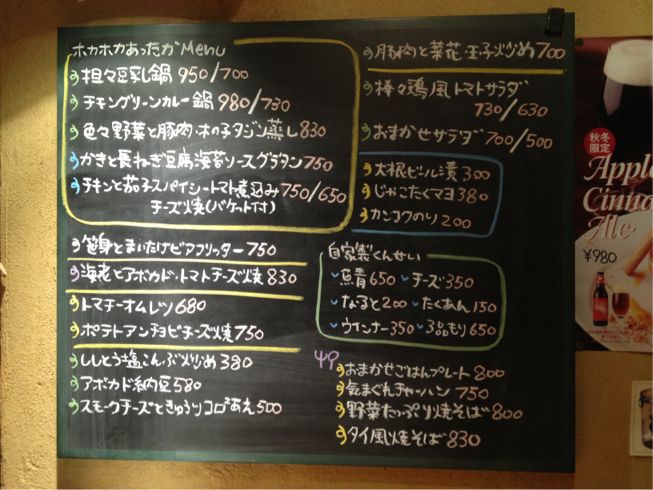 ホカホカあったかMenu
担々豆乳鍋 950/700
チキングリーンカレー鍋 980/730
色々野菜と豚肉・木の子タジン蒸し 830
かきと長ねぎ豆腐海苔ソースグラタン 750
チキンと茄子スパイシートマト煮込み 750/650
チーズ焼(バケット付)
笹身とまいたけビアフリッター 750
海老とアボカド・トマトチーズ焼 830
トマチーオムレツ 680
ポテトアンチョビチーズ焼 750
ししとう塩こんぶ炒め 380
アボカド納豆 580
スモークチーズときゅうりコロコロあえ 500
豚肉と菜花・玉子炒め 700
棒々鶏風トマトサラダ
730/630
おまかせサラダ 700/500
大根ビール漬 300
じゃこたくマヨ 380
カンコクのり 200
自家製くんせい
魚青 650 チーズ 350
なると 200 たくあん 150
ウインナー 350 3品もり 650
おまかせごはんプレート 800
気まぐれチャーハン 750
野菜たっぷり焼そば 800
タイ風焼そば 830
秋冬
限定
Apple
Cinna
Ale
¥980